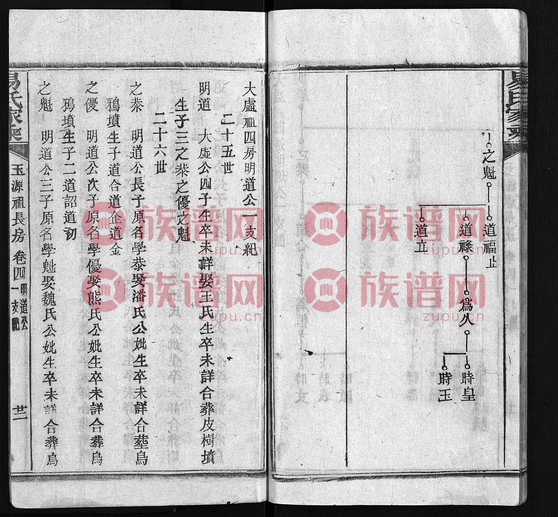 易氏家乘
之魁
道福止
道祿
道立
為久
時皇
時玉
大虛祖四房明道公一支紀
二十五世
明道 大虛公四子生卒未詳娶王氏生卒未詳合葬皮樹墳
生子三之桊之優之魁
二十六世
之桊 明道公長子原名學泰娶潘氏公妣生卒未詳合葬烏
鴉墳生子道合道企道金
之優 明道公次子原名學優娶熊氏公妣生卒未詳合葬烏
鴉墳生子二道詔道初
之魁 明道公三子原名學魁娶魏氏公妣生卒未詳合葬烏
易氏家乘
玉源祖長房 卷四 明道公一支紀
廿二
族谱网
zupu.cn
族谱网
zupu.cn
族谱网
zupu.cn
族谱网
zupu.cn